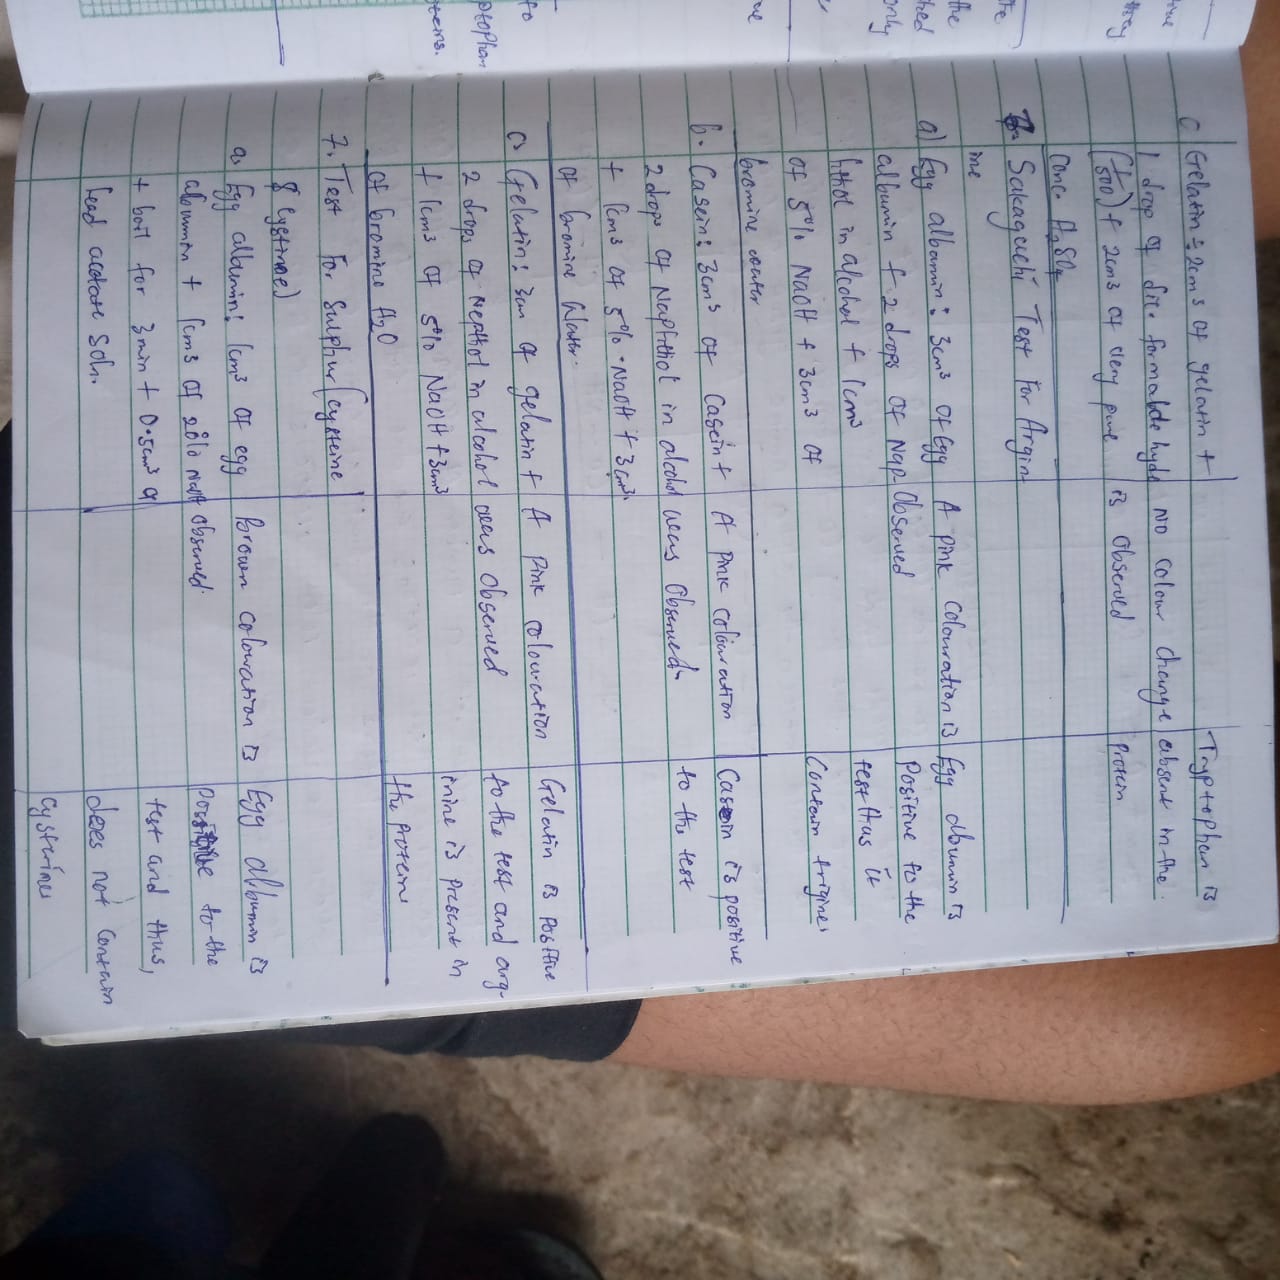 c) Gelatin :- 2cm3 of gelatin +
1 drop of dil. formaldehyde
(1/500) + 2cm3 of very pure
conc. H2SO4
No colour change
is observed
Tryptophan is
absent in the
protein
6. Sakaguchi Test For Argin
ine
a) Egg albumin: 3cm3 of Egg
albumin + 2 drops of Nap-
hthol in alcohol + 1cm3
of 5% NaOH + 3cm3 of
bromine water
A pink colouration is
observed
Egg albumin is
Positive to the
test thus it
Contain
b. Casein: 3cm3 of Casein +
2 drops of Naphthol in alcohol
+ 1cm3 of 5% NaOH + 3cm3
of bromine Water.
A pink colouration
was observed
Casein is positive
to the test
c) Gelatin: 3cm of gelatin +
2 drops of Nepthol in alcohol
+ 1cm3 of 5% NaOH + 3cm3
of bromine H2O
A pink colouration
was observed
Gelatin is positive
to the test and arg-
inine is present in
the protein
7. Test For Sulphur (cysteine
& Cystine)
a. Egg albumin: 1cm3 of egg
albumin + 1cm3 of 20% NaOH
+ boil for 3min + 0.5cm3 of
Lead acetate soln.
Brown colouration is
observed.
Egg albumin is
positive to the
test and thus,
does not contain
cysteine
tive
they
te
the
ched
only
to
ptophan
teins.